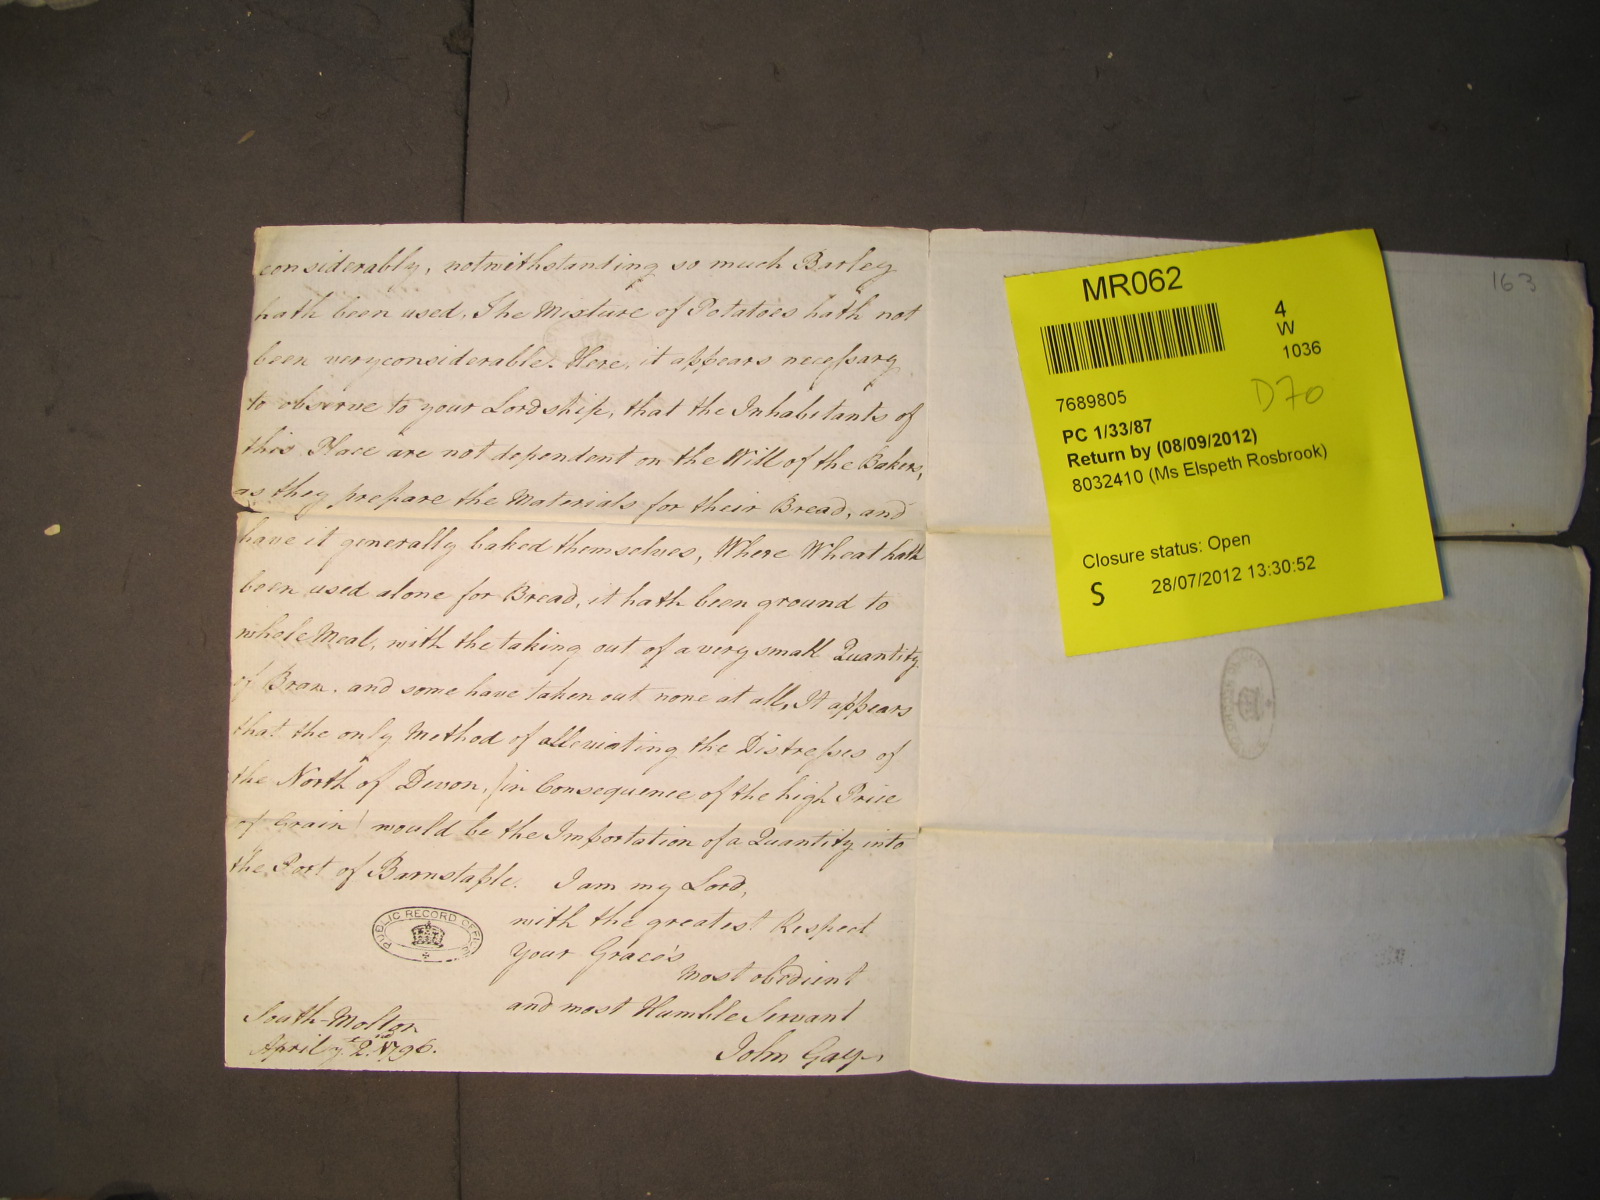 considerably, notwithstanding so much Barley
hath been used, The Mixture of Potatoes hath not
been very considerable. Here, it appears necessary
to observe to your Lordship, that the Inhabitants of
this Place are not dependent on the Will of the Bakers,
as they prepare the Materials for their Bread, and
have it generally baked themselves, Where Wheat hath
been used alone for Bread, it hath been ground to
whole Meal, with the taking out of a very small Quantity
of Bran. and some have taken out none at all, It appears
that the only Method of alleviating the Distresses of
the North of Devon, (in Consequence of the high Price
of Grain) would be the Importation of a Quantity into
the Port of Barnstaple. I am my Lord,
with the greatest Respect
Your Grace's
most obedient
and most Humble Servant
John Gay.
South-Molton
April ye 2nd 1796.
PUBLIC RECORD OFFICE
163
MR062
4
W
1036
7689805
D70
PC 1/33/87
Return by (08/09/2012)
8032410 (Ms Elspeth Rosbrook)
Closure status: Open
S 28/07/2012 13:30:52